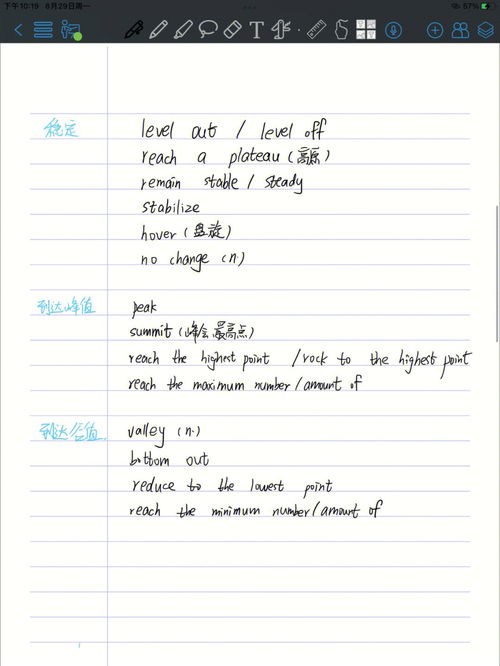 下午10:19 8月29日周一
57%
T
稳定
level out / level off
reach a plateau (高原)
remain stable / steady
stabilize
hover (盘旋)
no change (n.)
到达峰值
peak
summit (峰会 最高点)
reach the highest point /rock to the highest point
reach the maximum number/amount of
到达谷值
valley (n.)
bottom out
reduce to the lowest point
reach the minimum number/amount of